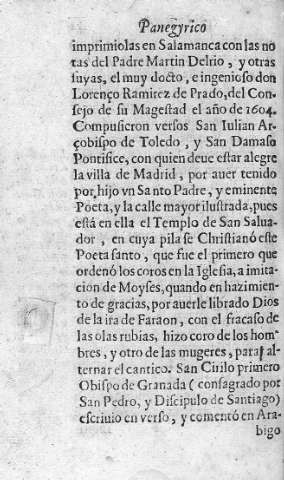 Panegyrico
imprimiolas en Salamanca con las no
tas del Padre Martin Delrio, y otras
suyas, el muy docto, e ingenioso don
Lorenço Ramirez de Prado, del Con-
sejo de su Magestad el año de 1604.
Compusieron versos San Iulian Ar-
çobispo de Toledo, y San Damaso
Pontifice, con quien deue estar alegre
la villa de Madrid, por auer tenido
por hijo vn Santo Padre, y eminente
Poeta, y la calle mayor ilustrada, pues
està en ella el Templo de San Salua-
dor, en cuya pila se Christianó este
Poeta santo, que fue el primero que
ordenò los coros en la Iglesia, a imita-
cion de Moyses, quando en hazimien
to de gracias, por auerle librado Dios
de la ira de Faraon, con el fracaso de
las olas rubias, hizo coro de los hom-
bres, y otro de las mugeres, para al-
ternar el cantico. San Cirilo primero
Obispo de Granada (consagrado por
San Pedro, y Discipulo de Santiago)
escriuio en verso, y comentó en Ara-
bigo